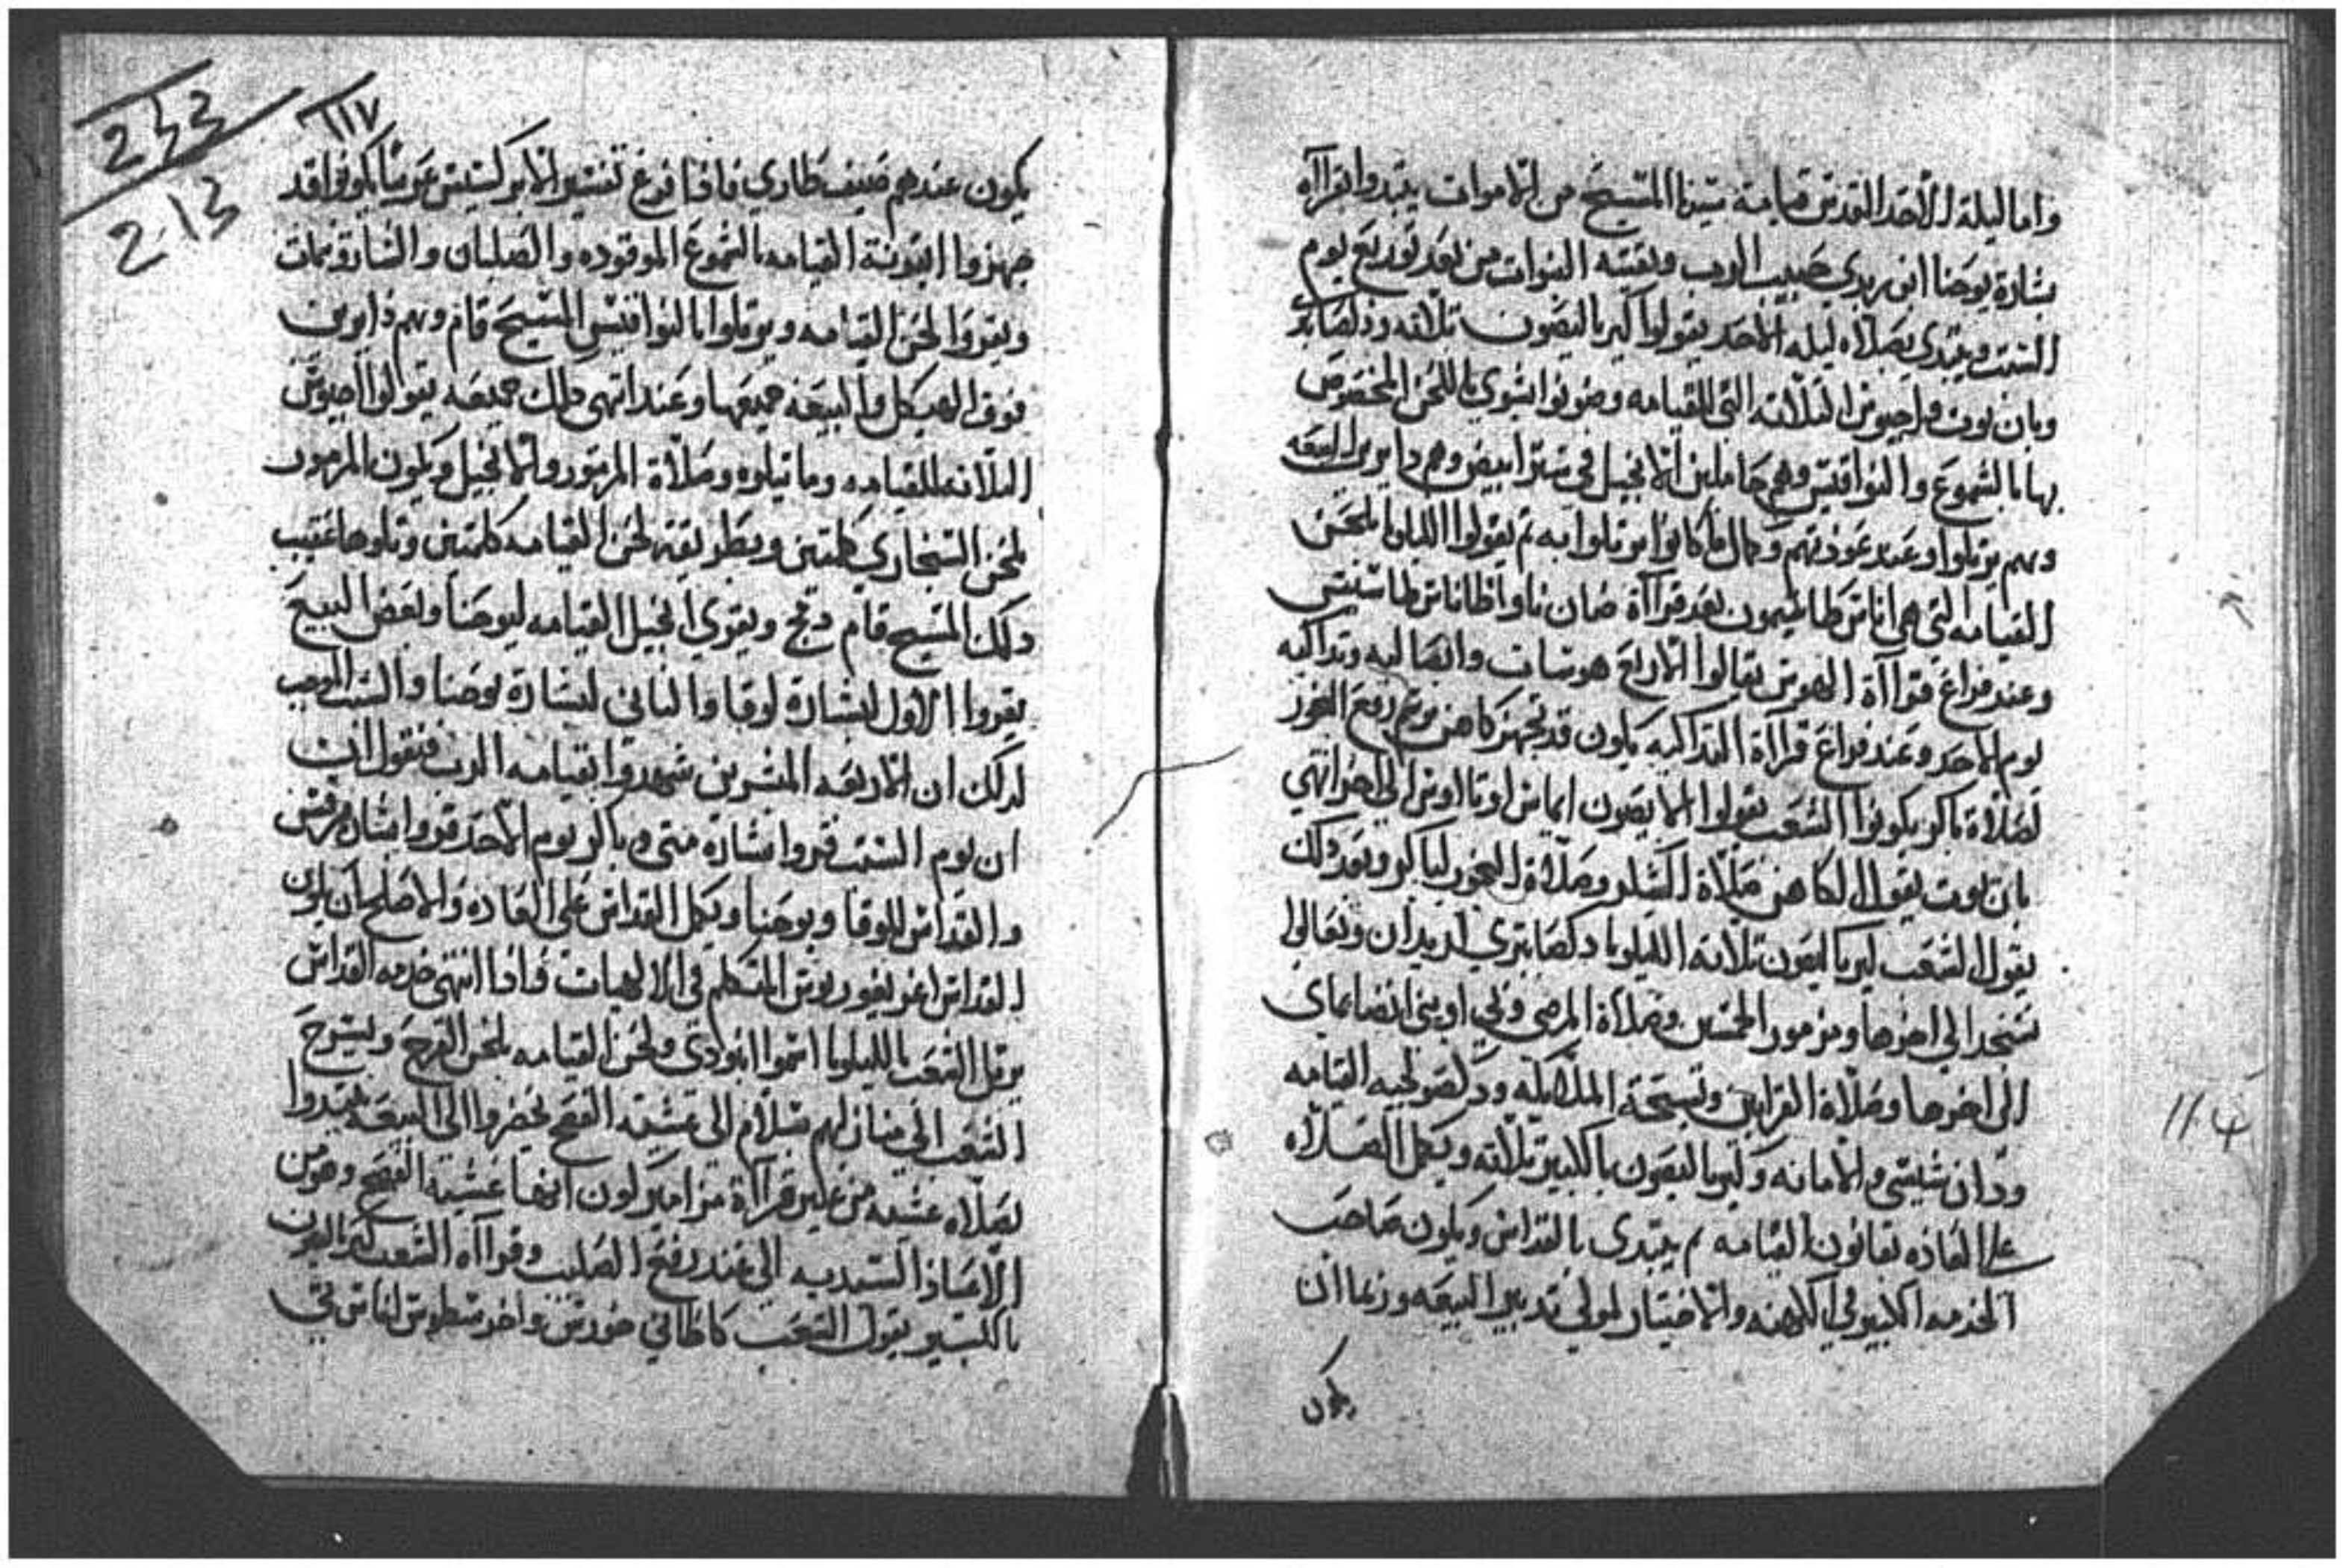 واما ليلة الاحد المقدس قيامة سيدنا المسيح من الاموات يبتدوا بقراآه
بشارة يوحنا ابن زبدي حبيب الرب وبقيته النبوات من بعد توديع يوم
السبت ويبتدي بصلاه ليله الاحد يقولوا كيرياليصون ثلاثه وذلصابتر
وبان نوت واجيوس الثلاثه التي للقيامه وضوفوا انبوي باللحن المخصوص
بها بالشموع والنواقيس وهم حاملين الانجيل في ستر ابيض وهم دايرين البيعه
وهم يرتلوا وعند عودتهم وكمال ما كانوا يرتلوا به ثم يقولوا الليلويا بلحن
القيامه التي هي اناسطاطيمون بعد قراآة
وعند فراغ قراآة الهوس يقالوا الاربع هوسات والابصاليه وتداكيه
يوم الاحد وعند فراغ قراآة التداكيه يكون قد تجهز كاهن يرفع البخور
لصلاة باكر يكونوا الشعب يقولوا الابصون ايماس اوتا اوس الي اخر انتهي
بان نوت يقول الكاهن صلاة الشكر وصلاة البخور لباكر وبعد ذلك
يقول الشعب كيرياليصون ثلاثه الليلويا دكصابتري وتعالوا
نسجد الي اخرها ومزمور الخمسين وصلاة المرضي
الي اخرها وصلاة القرابين وتسبحة الملايكه ودكصولجيه القيامه
والامانه وكيرياليصون بالكبير ثلاثه ويكمل الصلاه
علي العاده بقانون القيامه ثم يبتدي بالقداس ويكون صاحب
الخدمه الكبير في الكهنه والاختيار لمولي تدبير البيعه وربما ان
يكون
١١٧
233
213
يكون عندهم ضيف طاري فاذا فرغ تفسير الابركسيس عربيا يكونوا قد
جهزوا ايقونة القيامه بالشموع الموقوده والصلبان والشاروبيمات
ويقروا لحن القيامه ويرتلوا بالنواقيس المسيح قام وهم دايرين
فوق الهيكل والبيعه جميعها وعند انتهي ذلك جميعه يتوالوا اجيوس
الثلاثه للقيامه وما تيلوه وصلاة المزمور والانجيل ويكون المزمور
بلحن السنجاري كلمتين وبطريقة لحن القيامه كلمتين وتلوها عقيب
ذلك المسيح قام ويقري انجيل القيامه ليوحنا وبعض البيع
يقروا الاول لبشارة لوقا والثاني لبشارة يوحنا والسبب الموجب
لذلك ان الاربعه المبشرين شهدوا بقيامه الرب فنقول ان
ان يوم السبت قروا بشارة متي وباكر يوم الاحد قروا بشاره مرقس
والقداس للوقا ويوحنا ويكمل القداس علي العاده والاصلح ان يكون
القداس اغريغوريوس المتكلم في الالهيات فاذا انتهي خدمه القداس
يرتل الشعب بالليلويا ولحن القيامه بلحن الفرح ويسرح
الشعب الي منازلهم بسلام الي عشية الفصح يحضروا الي البيعه يبتدوا
لصلاه عشيه من غير قراآة مزامير لون ايضا عشية الفصح وهو من
الاعياد السيديه الي عند رفع الصليب وقراآه الشعب كيرياليصون
بالكبير يقول الشعب كاطاني خورس
11.4